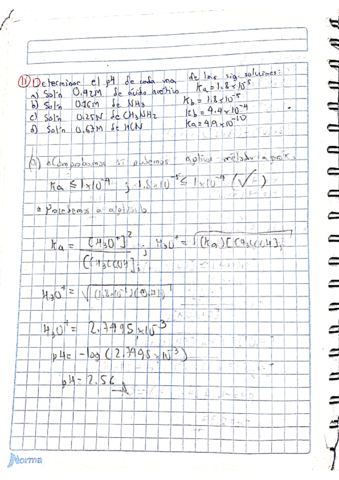 11) Determinar el pH de cada una de las sig. soluciones:
a) Sol'n 0.42M de ácido acético Ka=1.8x10⁻⁵
b) Sol'n de NH3 Kb=1.8x10⁻⁵
c) Sol'n 0.25N de CH3NH2 Kb=4.4x10⁻⁴
d) Sol'n 0.63M de HCN Ka=4.9x10⁻¹⁰
a) Comprobamos si podemos aplicar método aprox.
Ka ≤ 1x10⁻⁴ ; 1.8x10⁻⁵ ≤ 1x10⁻⁴ (✓)
• Procedemos a aplicarlo
Ka = [H3O⁺]² / [CH3COOH]i ; H3O⁺ = √(Ka)[CH3COOH]i
H3O⁺ = √(1.8x10⁻⁵)
H3O⁺ = 2.7495x10⁻³
pH = -log(2.7495x10⁻³)
pH = 2.56
Norma